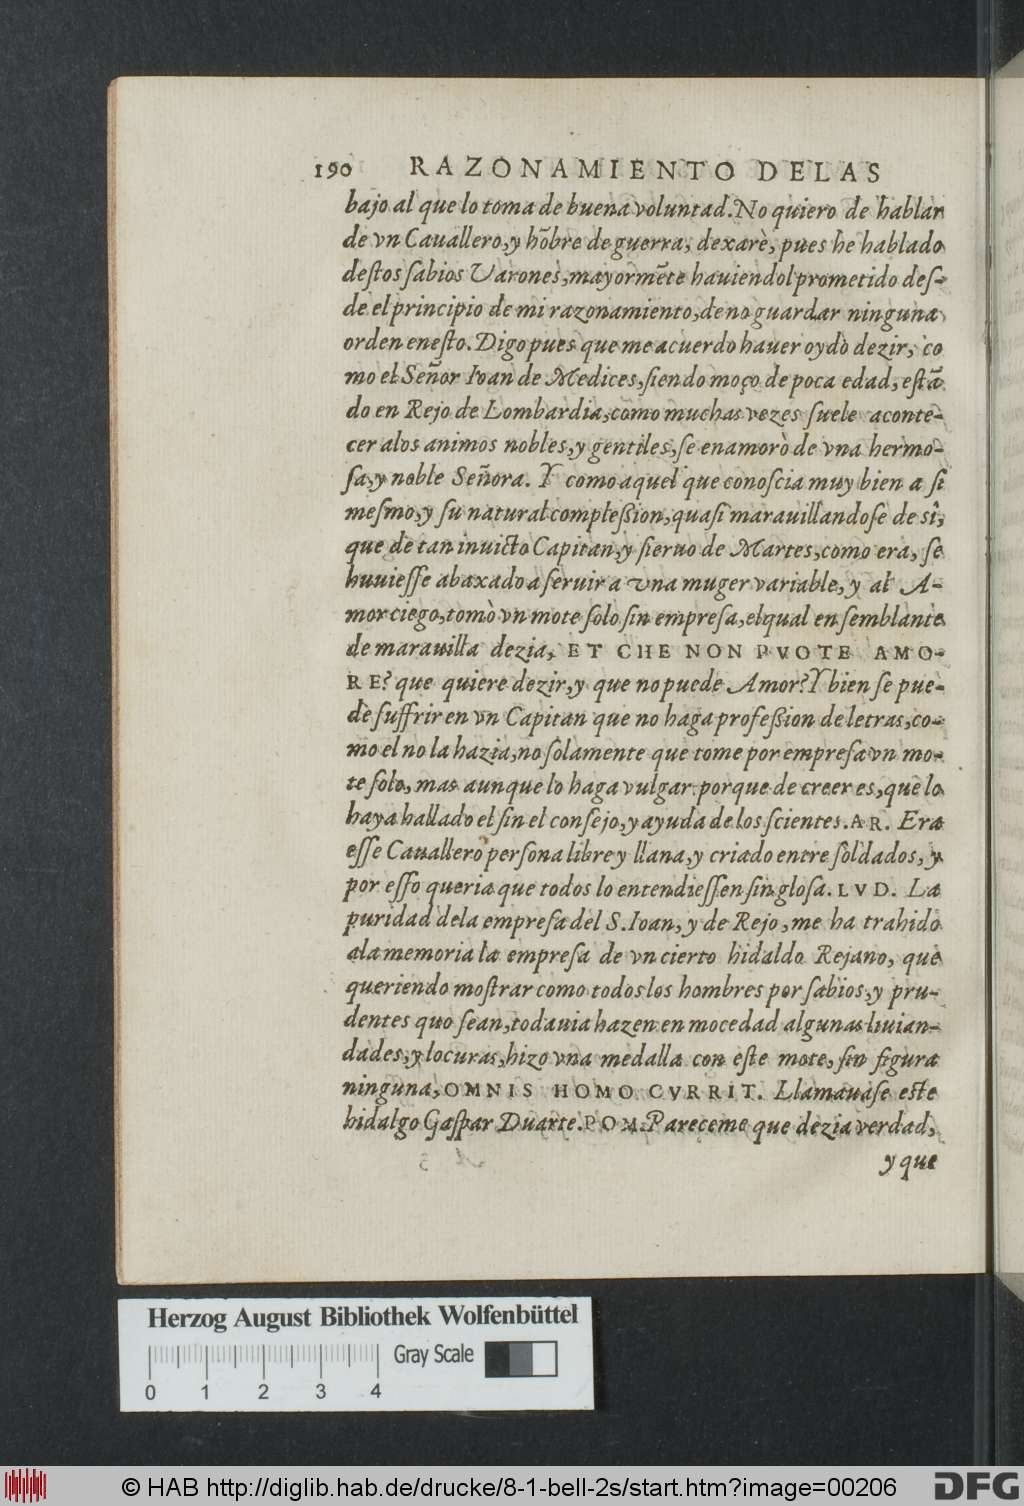 190 RAZONAMIENTO DELAS
bajo al que lo toma de buena voluntad. No quiero de hablar
de vn Cauallero, y hõbre de guerra, dexarè, pues he hablado
destos sabios Varones, mayormẽte hauiendol prometido des-
de el principio de mi razonamiento, de no guardar ninguna
orden enesto. Digo pues que me acuerdo hauer oydò dezir, co
mo el Señor Ioan de Medices, siendo moço de poca edad, estã
do en Rejo de Lombardia, como muchas vezes suele aconte-
cer alos animos nobles, y gentiles, se enamorò de vna hermo-
sa, y noble Señora. Y como aquel que conoscia muy bien a si
mesmo, y su natural complession, quasi marauillandose de sî,
que de tan inuicto Capitan, y sieruo de Martes, como era, se
huuiesse abaxado a seruir a vna muger variable, y al A-
mor ciego, tomò vn mote solo sin empresa, elqual en semblante
de marauilla dezia, ET CHE NON PVOTE AMO-
RE? que quiere dezir, y que no puede Amor? Y bien se pue-
de suffrir en vn Capitan que no haga profession de letras, co-
mo el no la hazia, no solamente que tome por empresa vn mo-
te solo, mas aunque lo haga vulgar: porque de creer es, que lo
haya hallado el sin el consejo, y ayuda de los scientes. AR. Era
esse Cauallero persona libre y llana, y criado entre soldados, y
por esso queria que todos lo entendiessen sin glosa. LVD. La
puridad dela empresa del S. Ioan, y de Rejo, me ha trahido
ala memoria la empresa de vn cierto hidaldo Rejano, que
queriendo mostrar como todos los hombres por sabios, y pru-
dentes quo sean, todauia hazen en mocedad algunas liuian-
dades, y locuras, hizo vna medalla con este mote, sin figura
ninguna, OMNIS HOMO CVRRIT. Llamauase este
hidalgo Gaspar Duarte. POM. Pareçeme que dezia verdad,
y que
Herzog August Bibliothek Wolfenbüttel
Gray Scale
0 1 2 3 4
© HAB http://diglib.hab.de/drucke/8-1-bell-2s/start.htm?image=00206
DFG